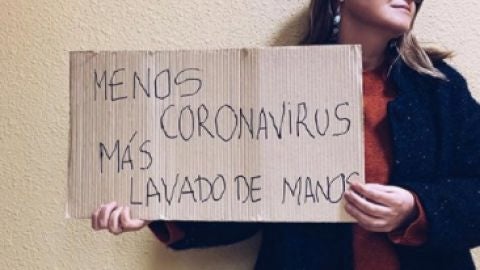 MENOS
CORONAVIRUS
MÁS
LAVADO DE MANOS